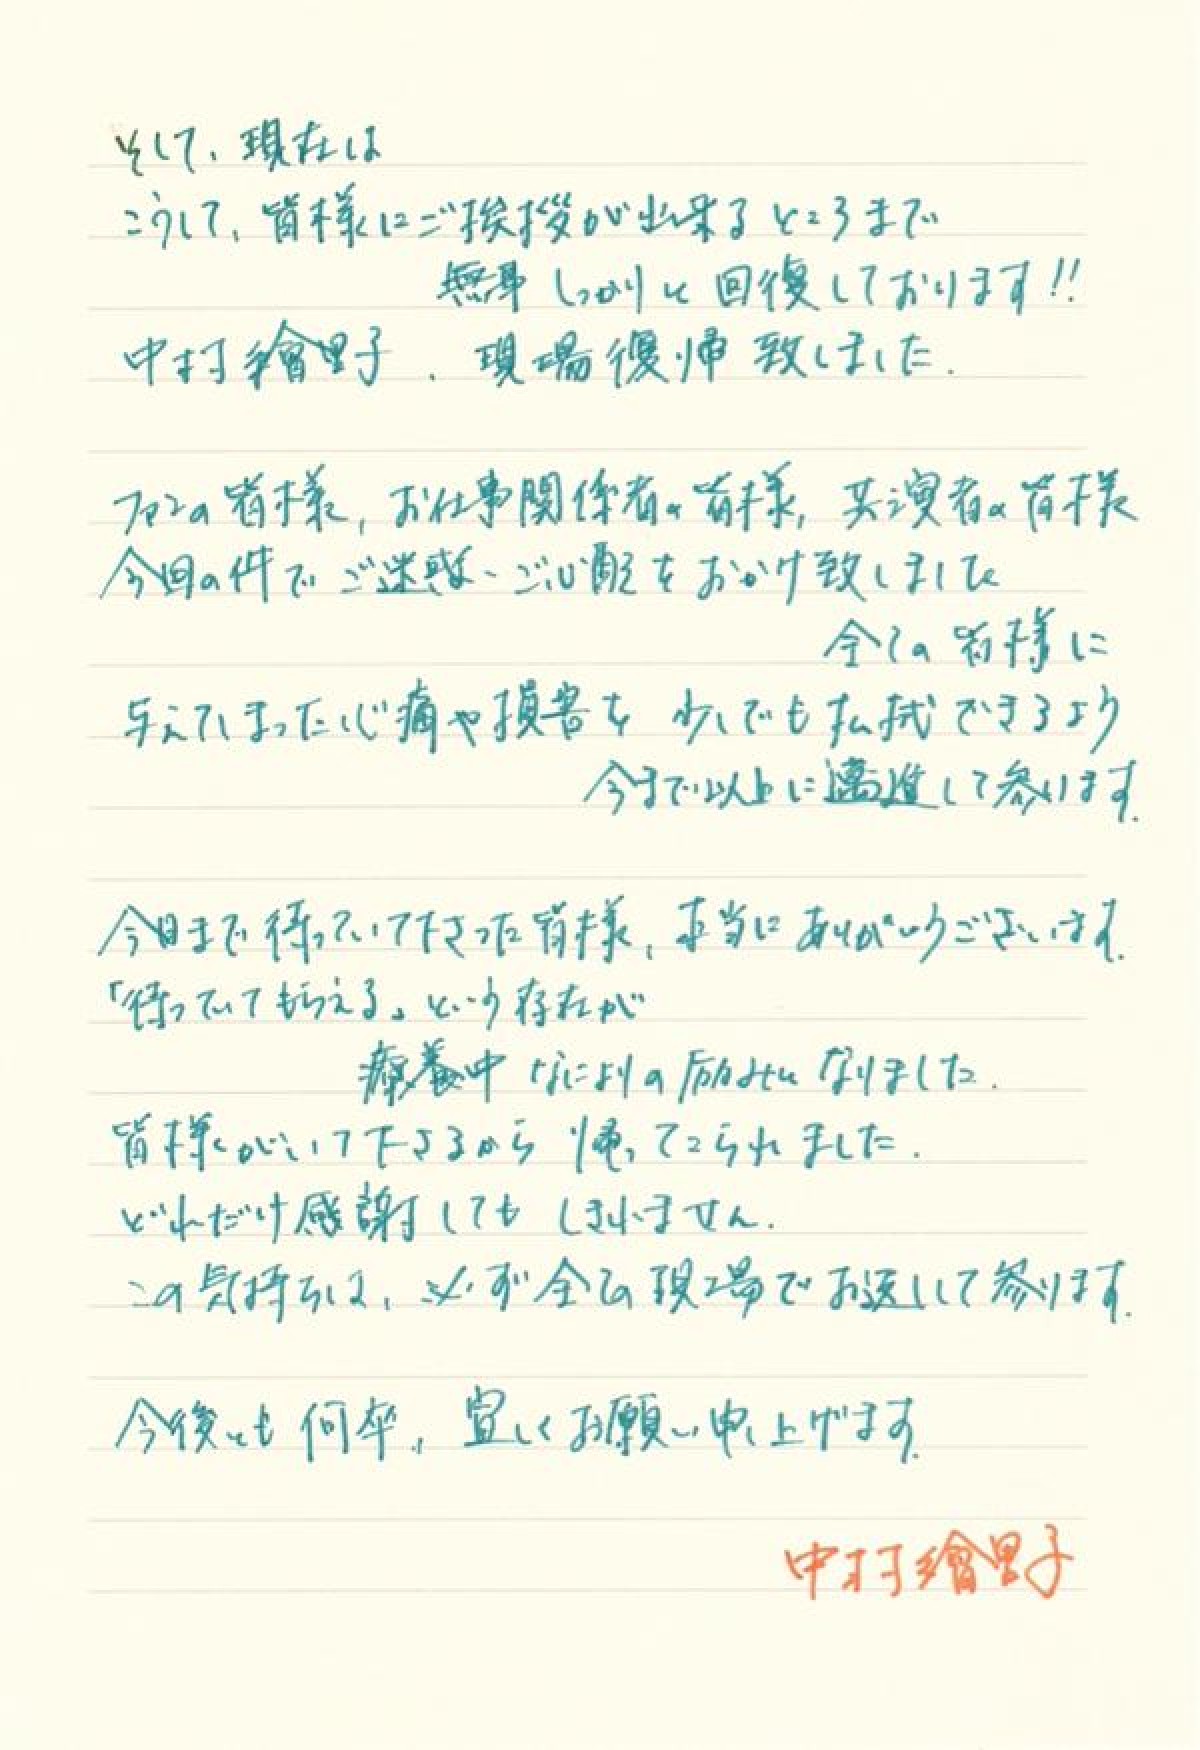 そして、現在は
こうして、皆様にご挨拶が出来るところまで
無事 しっかりと 回復しております!!
中村繪里子、現場復帰致しました.
ファンの皆様, お仕事関係者の皆様, 共演者の皆様
今回の件で ご迷惑・ご心配を おかけ致しました
全ての皆様に
与えてしまった心痛や損害を 少しでも払拭できるよう
今まで以上に邁進して参ります.
今日まで待っていて下さった皆様, 本当にありがとうございます.
「待っていてもらえる」という存在が
療養中 なによりの励みになりました.
皆様がいて下さるから 帰ってこられました.
どれだけ感謝しても しきれません.
この気持ちは, 必ず全ての現場でお返しして参ります.
今後とも 何卒, 宜しくお願い申し上げます.
中村繪里子